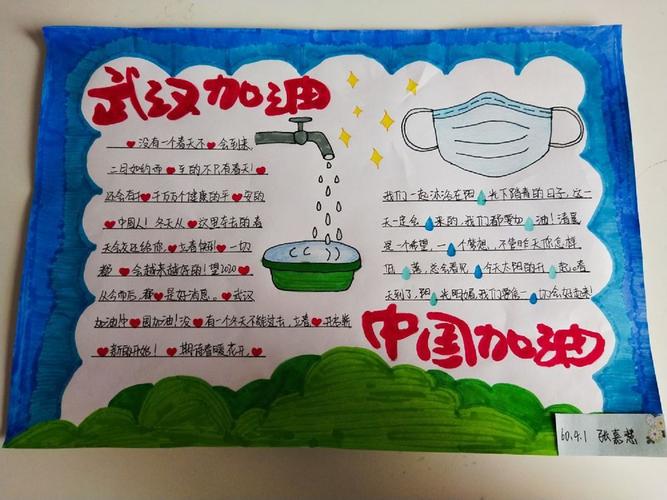 武汉加油
没有一个春天不会到来,
二月如约而至的不只有春天!
还会有千万万个健康的平安的
中国人!冬天从这里夺去的春
天会交还给你,七春快到一切
都会越来越好的!望2020
从今而后,都是好消息。武汉
加油!中国加油!没有一个冬天不能过去,七春开启新
新的开始!期待春暖花开,
我们一起沐浴在阳光下踏青的日子,这一
天一定会来的,我们都要加油!清晨
是一个希望,一个梦想,不管昨天你怎样
低落,总会看见今天太阳的升起。春
天到了,阳光明媚,我们坚信一切会好起来!
中国加油
60.4.1 张嘉慧